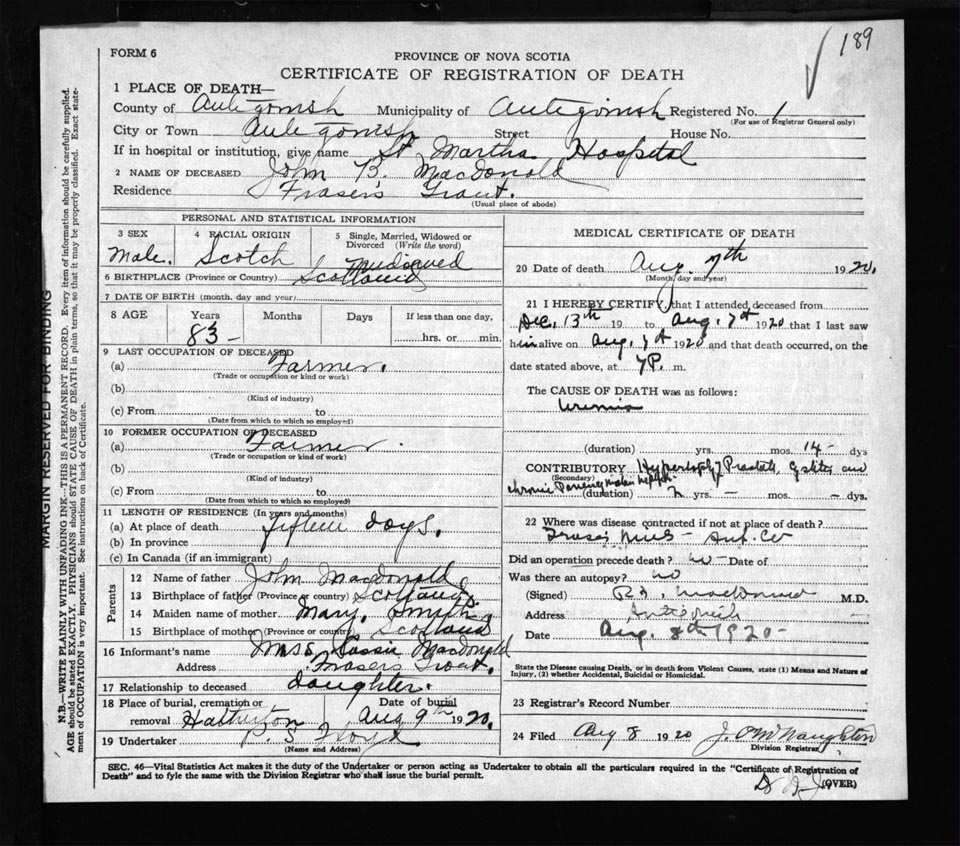 189
FORM 6
PROVINCE OF NOVA SCOTIA
CERTIFICATE OF REGISTRATION OF DEATH
1 PLACE OF DEATH—
County of Antigonish Municipality of Antigonish Registered No. 1
(For use of Registrar General only)
City or Town Antigonish Street House No.
If in hospital or institution, give name St Martha Hospital
2 NAME OF DECEASED John B. MacDonald
Residence Frasers Grant.
(Usual place of abode)
PERSONAL AND STATISTICAL INFORMATION
3 SEX
Male.
4 RACIAL ORIGIN
Scotch
5 Single, Married, Widowed or
Divorced (Write the word)
Widowed
6 BIRTHPLACE (Province or Country) Scotland
7 DATE OF BIRTH (month, day and year)
8 AGE Years Months Days If less than one day,
83 – hrs. or min.
9 LAST OCCUPATION OF DECEASED
(a) Farmer.
(Trade or occupation or kind of work)
(b)
(Kind of industry)
(c) From to
(Date from which to which employed)
10 FORMER OCCUPATION OF DECEASED
(a) Farmer.
(Trade or occupation or kind of work)
(b)
(Kind of industry)
(c) From to
(Date from which to which so employed)
11 LENGTH OF RESIDENCE (In years and months)
(a) At place of death fifteen days.
(b) In province
(c) In Canada (if an immigrant)
Parents
12 Name of father John MacDonald.
13 Birthplace of father (Province or country) Scotland.
14 Maiden name of mother Mary Smyth
15 Birthplace of mother (Province or country) Scotland
16 Informant's name Miss Cassie MacDonald
Address Frasers Grant.
17 Relationship to deceased daughter.
18 Place of burial, cremation or Date of burial
removal Aug 9th 1920.
19 Undertaker P. S. Floyd
(Name and Address)
MEDICAL CERTIFICATE OF DEATH
20 Date of death Aug. 7th 1920.
(Month, day and year)
21 I HEREBY CERTIFY, that I attended deceased from
Dec. 13th 19 to Aug. 7th 1920 that I last saw
him alive on Aug. 7th 1920 and that death occurred, on the
date stated above, at 7 P. m.
The CAUSE OF DEATH was as follows:
Uremia
(duration) yrs. mos. 14 – dys
CONTRIBUTORY Hypertrophy Prostate Cystitis and
(Secondary)
chronic Parenchymatous Nephritis
(duration) 2 yrs. – mos. – dys.
22 Where was disease contracted if not at place of death?
Frasers Mills – Ant. Co
Did an operation precede death? no – Date of
Was there an autopsy? no
(Signed) MacDonald M.D.
Address Antigonish
Date Aug. 8th 1920 –
State the Disease causing Death, or in death from Violent Causes, state (1) Means and Nature of
Injury, (2) whether Accidental, Suicidal or Homicidal.
23 Registrar's Record Number
24 Filed Aug 8 1920 McNaughton
Division Registrar
SEC. 46—Vital Statistics Act makes it the duty of the Undertaker or person acting as Undertaker to obtain all the particulars required in the "Certificate of Registration of
Death" and to fyle the same with the Division Registrar who shall issue the burial permit.
(OVER)
MARGIN RESERVED FOR BINDING
N.B.—WRITE PLAINLY WITH UNFADING INK—THIS IS A PERMANENT RECORD. Every item of information should be carefully supplied.
AGE should be stated EXACTLY. PHYSICIANS should STATE CAUSE OF DEATH in plain terms, so that it may be properly classified. Exact state-
ment of OCCUPATION is very important. See instructions on back of Certificate.